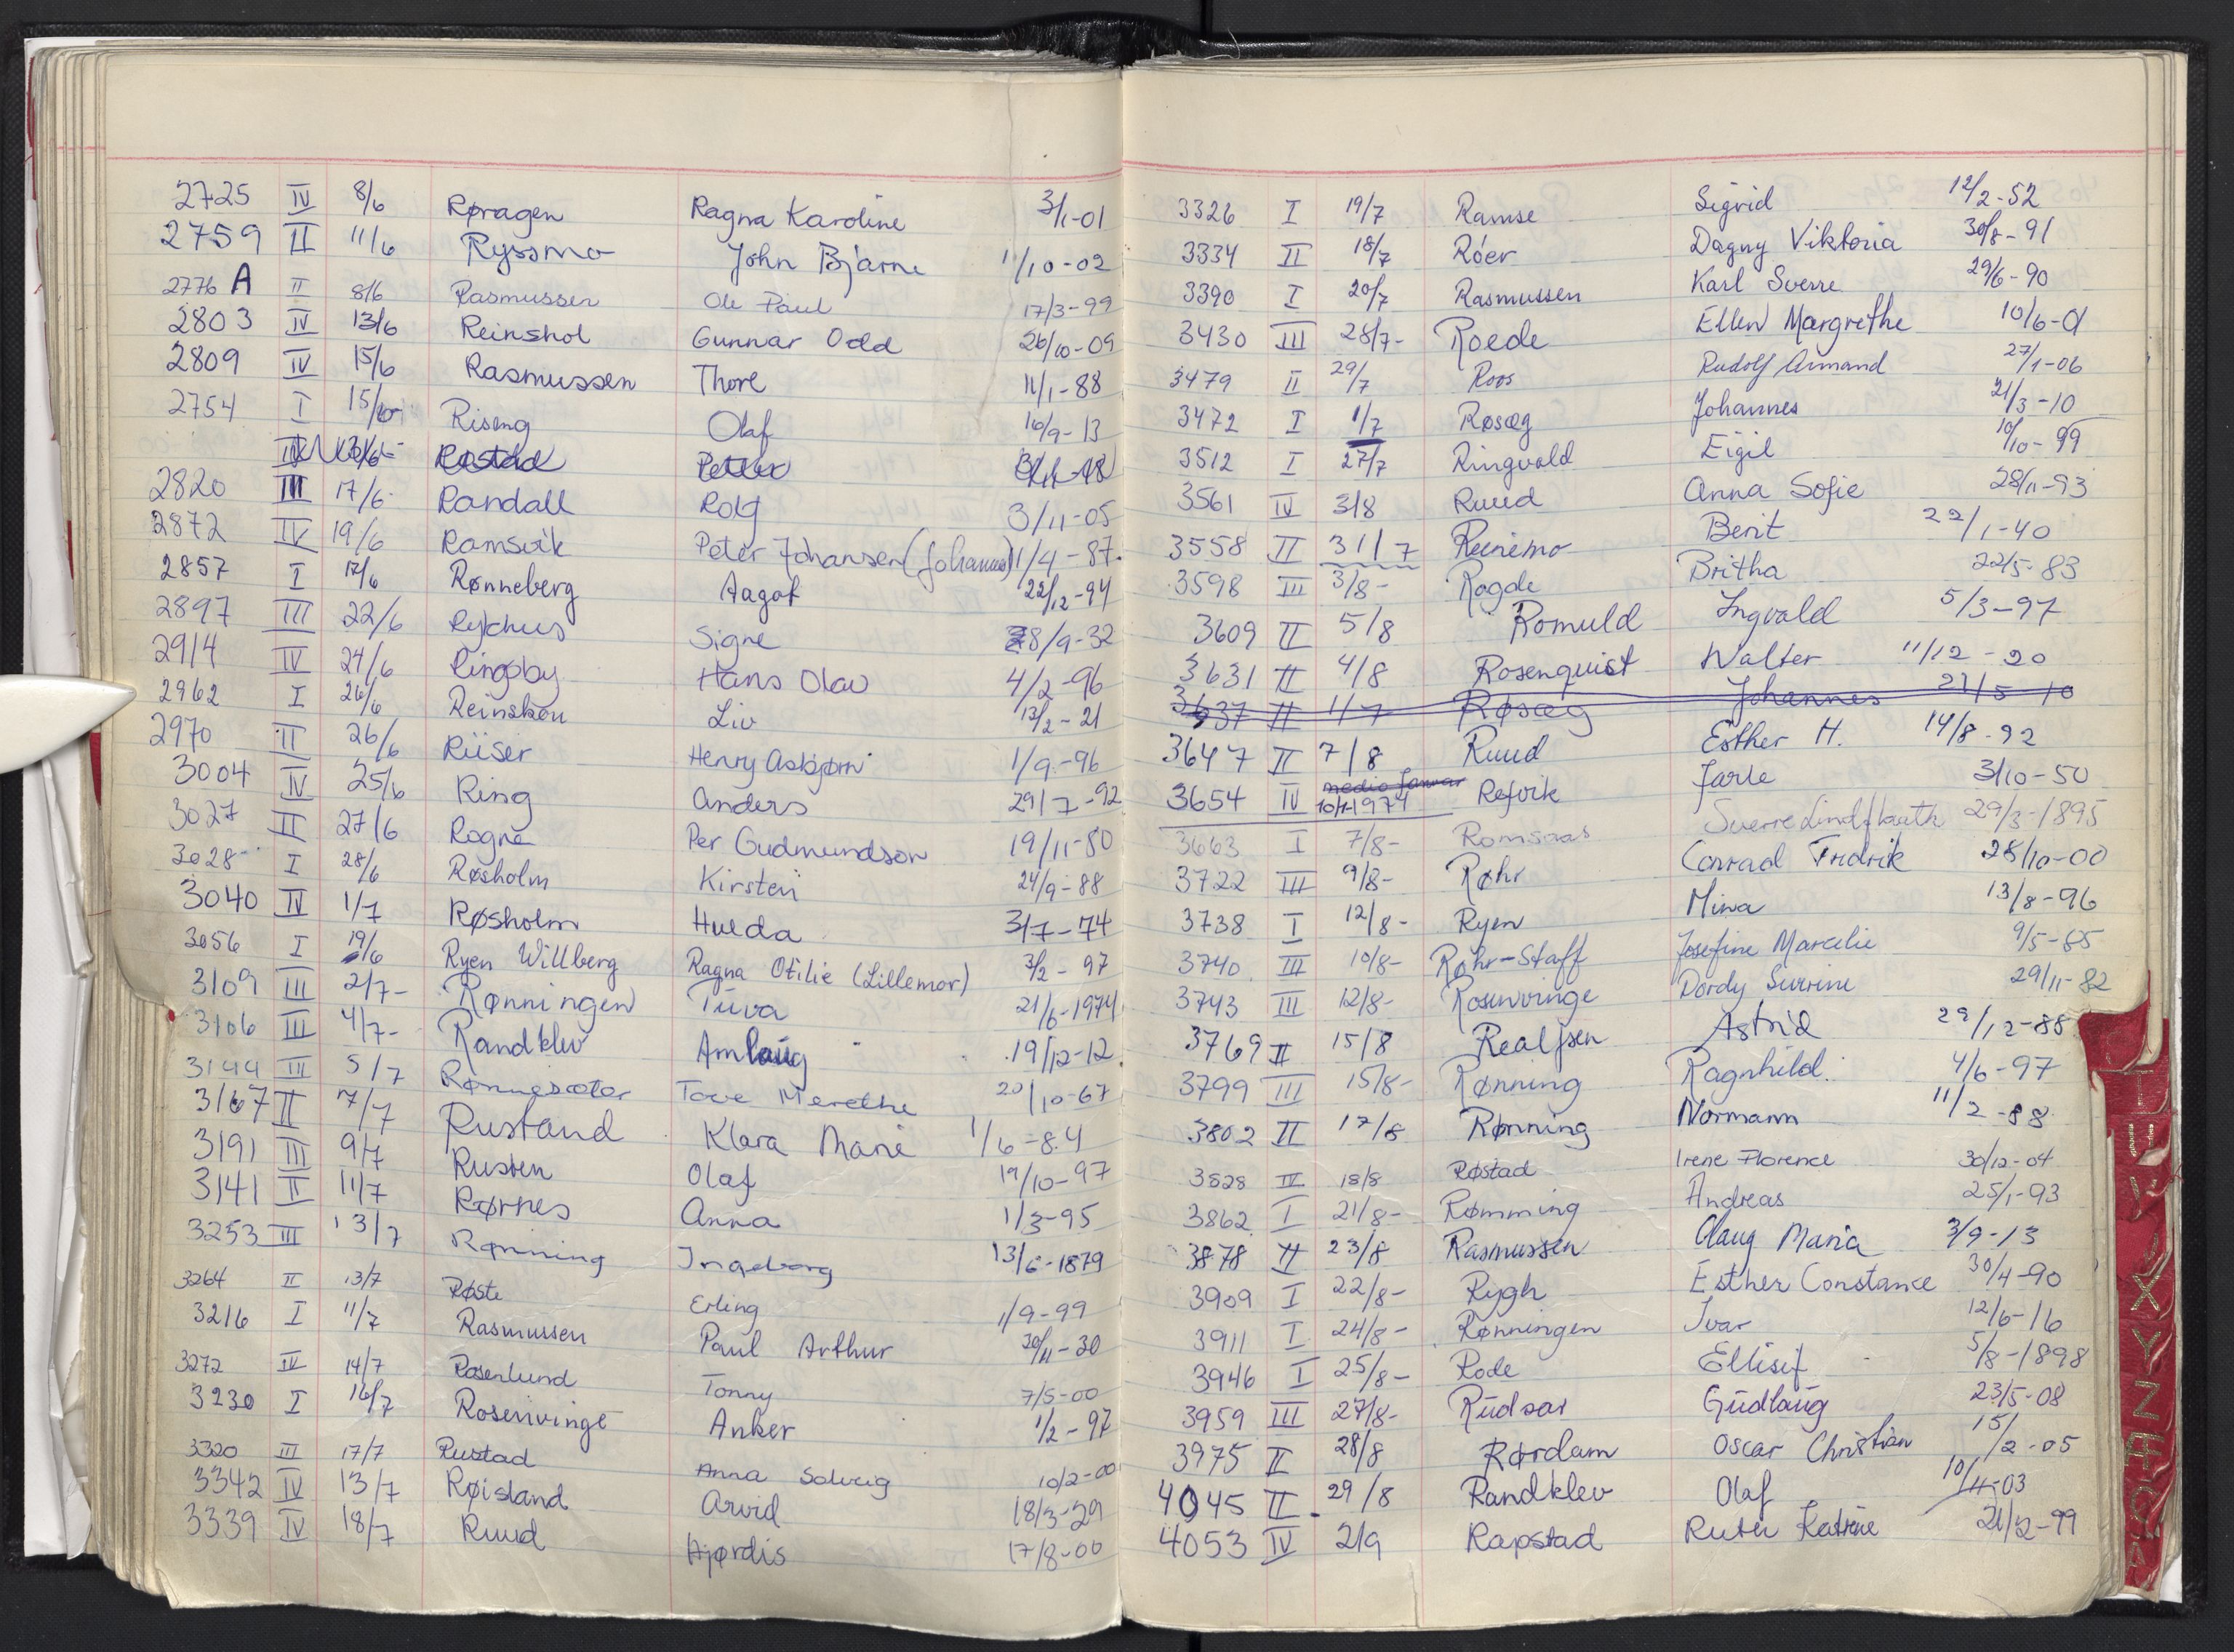 2725 IV 8/6 Røragen Ragna Karoline 3/1-01
2759 II 11/6 Ryssmo John Bjarne 11/10-02
2776 A II 8/6 Rasmussen Ole Paul 17/3-99
2803 IV 13/6 Reinshol Gunnar Odd 26/10-09
2809 IV 15/6 Rasmussen Thore 11/1-88
2754 I 15/6 Riseng Olaf 16/9-13
Rostad Petter
2820 III 17/6 Randall Rolf 3/11-05
2872 IV 19/6 Ramsvik Peter Johansen (Johannes) 1/4-87
2857 I 17/6 Rønneberg Aagot 22/12-94
2897 III 22/6 Signe 28/9-32
2914 IV 24/6 Ringsby Hans Olav 4/2-96
2962 I 26/6 Reinskou Liv 13/2-21
2970 II 26/6 Riiser Henry Asbjørn 1/9-96
3004 IV 25/6 Ring Anders 29/7-92
3027 II 27/6 Rogne Per Gudmundson 19/11-80
3028 I 28/6 Røsholm Kirsten 24/9-88
3040 IV 1/7 Røsholm Hulda 3/7-74
3056 I 19/6 Ryen Willberg Ragna Otilie (Lillemor) 3/2-97
3109 III 2/7- Rønningen Tuva 21/6-1974
3106 III 4/7- Randklev Amlaug 19/12-12
3144 III 5/7 Rønnesæter Tove Merethe 20/10-67
3167 II 7/7 Rustand Klara Marie 1/6-84
3191 III 9/7 Rusten Olaf 19/10-97
3141 II 11/7 Rørnes Anna 1/3-95
3253 III 13/7 Rønning Ingeborg 13/6-1879
3264 II 13/7 Røste Erling 1/9-99
3216 I 11/7 Rasmussen Paul Arthur 30/11-30
3272 IV 14/7 Rosenlund Tonny 7/5-00
3230 I 16/7 Rosenvinge Anker 1/2-97
3320 III 17/7 Rustad Anna Solveig 10/2-00
3342 IV 13/7 Røisland Arvid 18/3-29
3339 IV 18/7 Ruud Hjørdis 17/8-00
3326 I 19/7 Ramse Sigrid 12/2-52
3334 II 18/7 Róer Dagny Viktoria 30/8-91
3390 I 20/7 Rasmussen Karl Sverre 29/6-90
3430 III 28/7- Roede Ellen Margrethe 10/6-01
3479 II 29/7 Roos Rudolf Armand 27/1-06
3472 I 1/7 Røsæg Johannes 21/3-10
3512 I 27/7 Ringvold Eigil 10/10-99
3561 IV 3/8 Ruud Anna Sofie 28/11-93
3558 II 31/7 Reinemo Berit 22/1-40
3598 III 3/8- Rogde Britha 22/5-83
3609 II 5/8 Romuld Ingvald 5/3-97
3631 II 4/8 Rosenquist Walter 11/12-20
3637 II 1/7 Røsæg Johannes 21/5 10
3647 II 7/8 Ruud Esther H. 14/8-92
3654 IV medio Januar 10/1-1974 Refvik Jarle 3/10-50
3663 I 7/8- Romsaas Sverre 29/3-1895
3722 III 9/8- Røhr Conrad Fredrik 28/10-00
3738 I 12/8- Ryen Mina 13/8-96
3740 III 10/8- Røhr-Staff Josefine Marcelie 9/5-85
3743 III 12/8- Rosenvinge Dordy Severine 29/11-82
3769 II 15/8 Realfsen Astrid 29/12-88
3799 III 15/8- Rønning Ragnhild 4/6-97
3802 II 17/8 Rønning Normann 11/2-88
3828 IV 18/8 Røstad Irene Florence 30/12-04
3862 I 21/8- Rømming Andreas 25/1-93
3878 II 23/8 Rasmussen Olaug Maria 3/9-13
3909 I 22/8- Rygh Esther Constance 30/4-90
3911 I 24/8- Rønningen Ivar 12/6-16
3946 I 25/8- Rode Ellisif 5/8-1898
3959 III 27/8- Rudsar Gudlaug 23/5-08
3975 II 28/8 Rørdam Oscar Christian 15/2-05
4045 II 29/8 Randklev Olaf 10/11-03
4053 IV 2/9 Rapstad Ruth Katrine 21/12-99
X
Y
Z
Æ
Ø